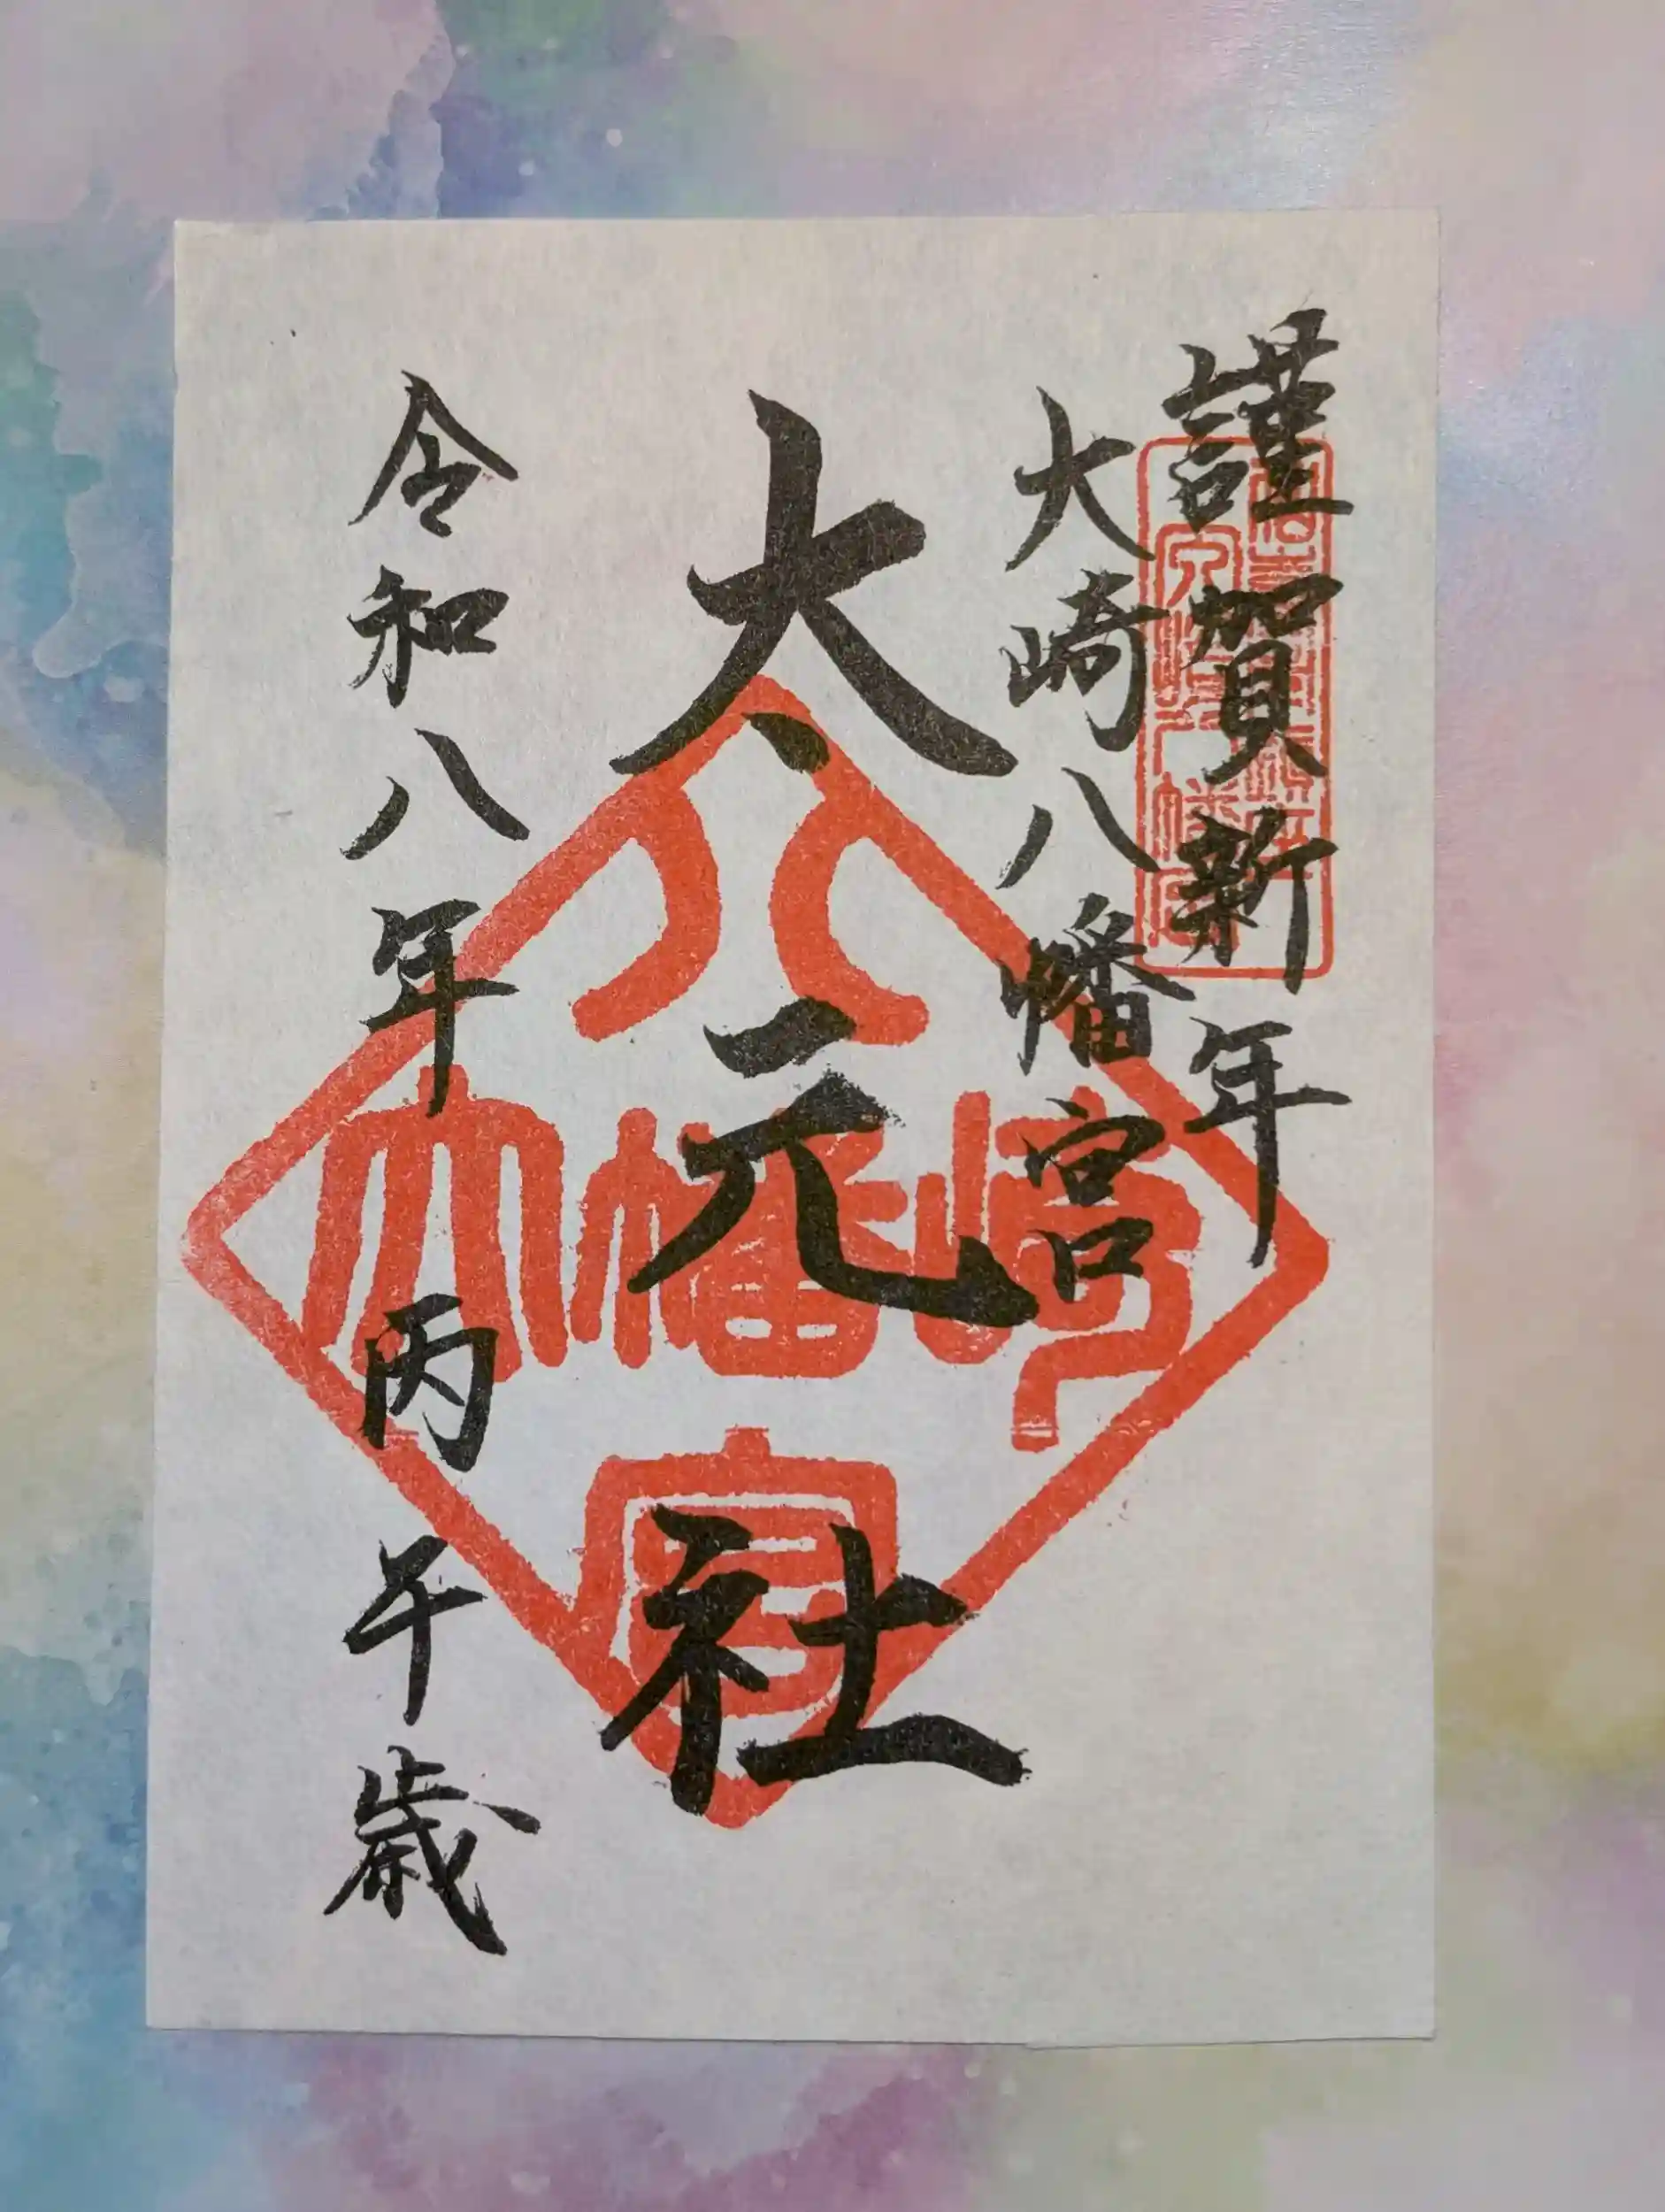 謹賀新年
大崎八幡宮
太元社
令和八年 丙午歳
八
大幡崎
宮